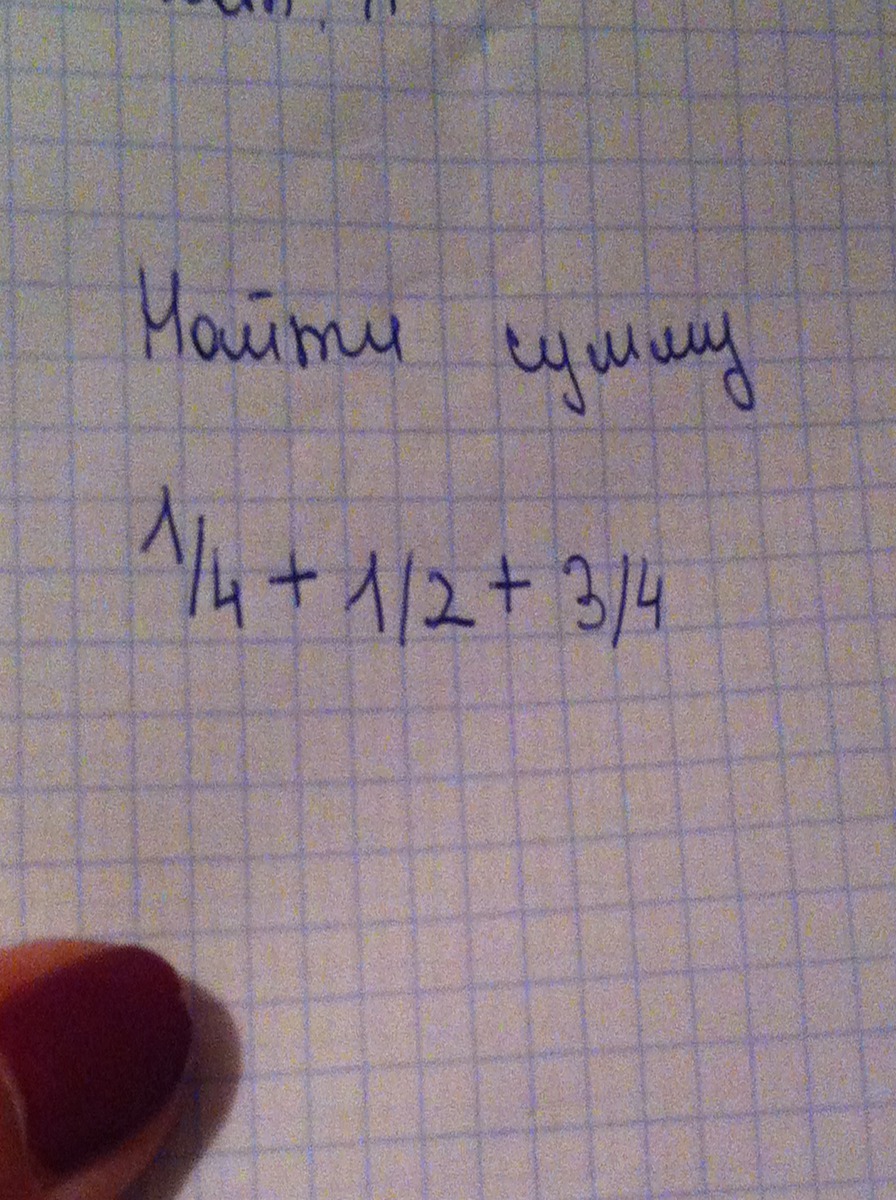 Найти сумму
1/4 + 1/2 + 3/4